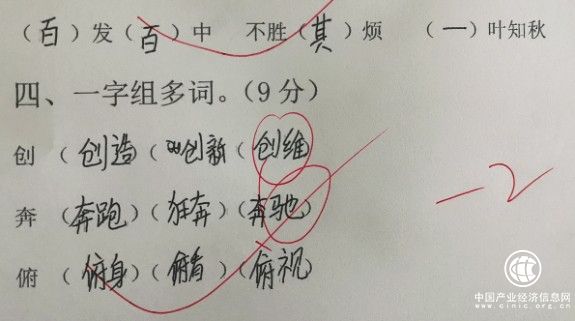 (百)发(百)中 不胜(其)烦 (一)叶知秋
四、一字组多词。(9分)
创 (创造)(创新)(创维)
奔 (奔跑)(狂奔)(奔驰)
俯 (俯身)(俯看)(俯视)
-2
中国产业经济信息网
www.cinic.org.cn